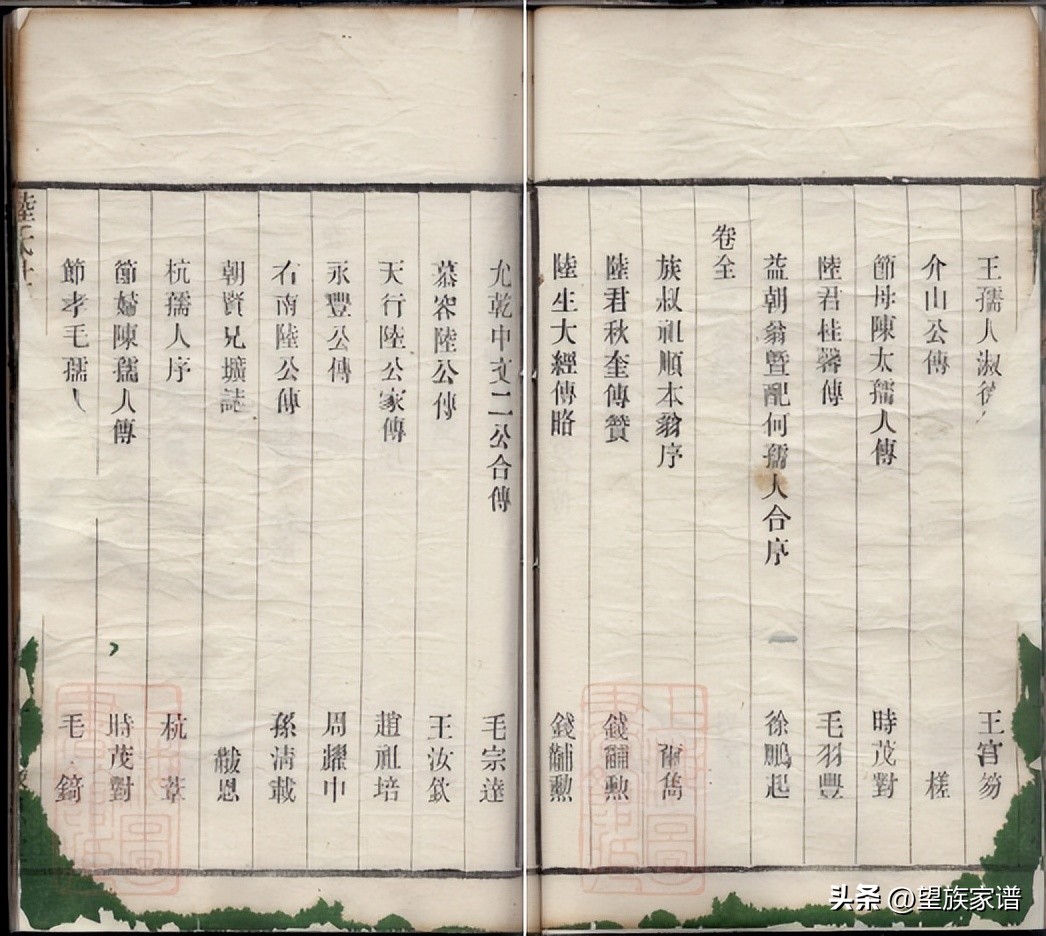 王孺人淑德 王宮笏
介山公傳 槎
節母陳太孺人傳 時茂對
陸君桂馨傳 毛羽豐
益朝翁暨配何孺人合序 徐鵬起
卷全
族叔祖順本翁序 爾雋
陸君秋奎傳贊 錢黼勲
陸生大經傳略 錢黼勲
允乾中文二公合傳 毛宗達
慕容陸公傳 王汝欽
天行陸公家傳 趙祖培
永豐公傳 周耀中
召南陸公傳 孫清載
朝賢兄壙誌 黻恩
杭孺人序 杭葦
節婦陳孺人傳 時茂對
節孝毛孺人 毛錡
陸氏世
头条 @望族家谱